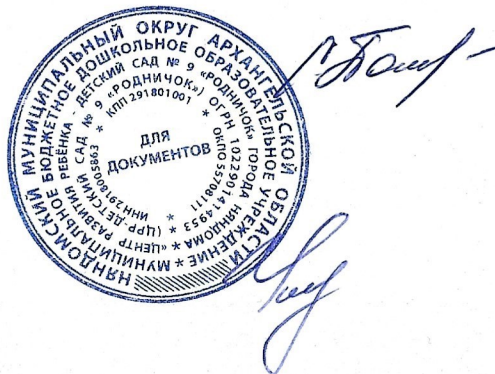 НЯНДОМСКИЙ МУНИЦИПАЛЬНЫЙ ОКРУГ АРХАНГЕЛЬСКОЙ ОБЛАСТИ
* МУНИЦИПАЛЬНОЕ БЮДЖЕТНОЕ ДОШКОЛЬНОЕ ОБРАЗОВАТЕЛЬНОЕ УЧРЕЖДЕНИЕ
* «ЦЕНТР РАЗВИТИЯ РЕБЁНКА - ДЕТСКИЙ САД № 9 «РОДНИЧОК» ГОРОДА НЯНДОМА
* (ЦРР-ДЕТСКИЙ САД № 9 «РОДНИЧОК») ОГРН 1022901414953
* ИНН 2918005863 * КПП 291801001 * ОКПО 55708111
ДЛЯ
ДОКУМЕНТОВ